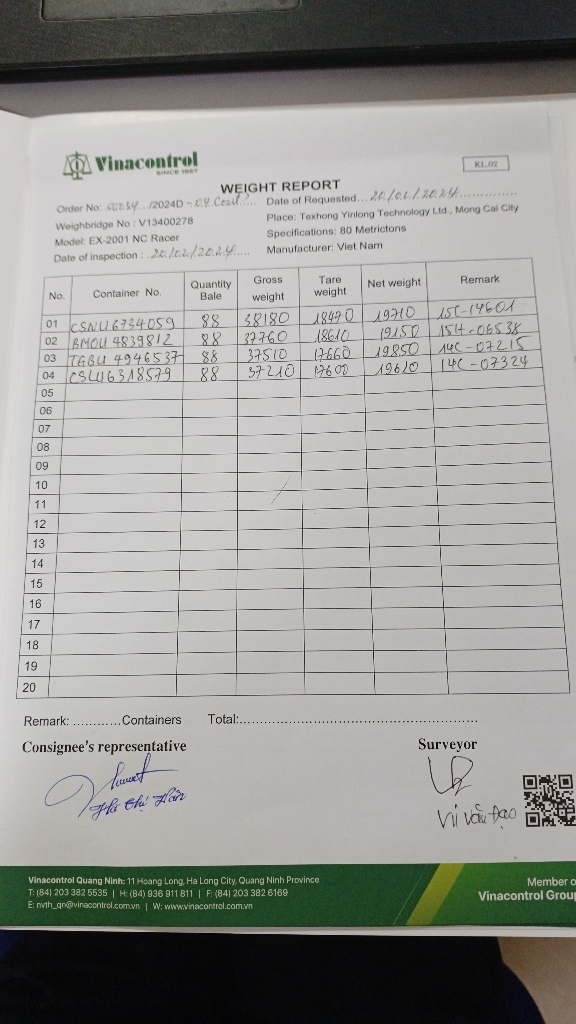 Vinacontrol
SINCE 1957
KL/02
WEIGHT REPORT
Order No: /2024D - 04 Date of Requested... 20/02/2024
Weighbridge No : V13400278 Place: Texhong Yinlong Technology Ltd., Mong Cai City
Model: EX-2001 NC Racer Specifications: 80 Metrictons
Date of inspection : 20/02/2024 Manufacturer: Viet Nam
No. Container No. Quantity Bale Gross weight Tare weight Net weight Remark
01 CSNU6734059 88 38180 18470 19710 15C-14601
02 BMOU 4839812 88 37760 18610 19150 15H-06538
03 TGBU 4946537 88 37510 17660 19850 14C-07215
04 CSLU6318579 88 37210 17600 19610 14C-07324
05
06
07
08
09
10
11
12
13
14
15
16
17
18
19
20
Remark: ............Containers Total:............
Consignee's representative Surveyor
Vi Văn Đạo
Vinacontrol Quang Ninh: 11 Hoang Long, Ha Long City, Quang Ninh Province
T: (84) 203 382 5535 | H: (84) 936 911 811 | F: (84) 203 382 6169
E: nvth_qn@vinacontrol.com.vn | W: www.vinacontrol.com.vn
Member o
Vinacontrol Group